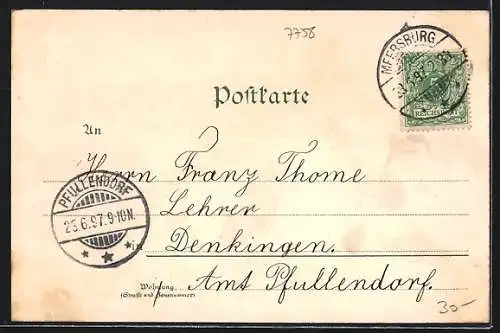 7758
MEERSBURG
REICHSPOST
Postkarte
An
Herrn Franz Thome
Lehrer
PFULLENDORF
23.6.97.9-10N.
in Denkingen.
Wohnung Amt Pfullendorf.
(Straße und Hausnummer)
30-